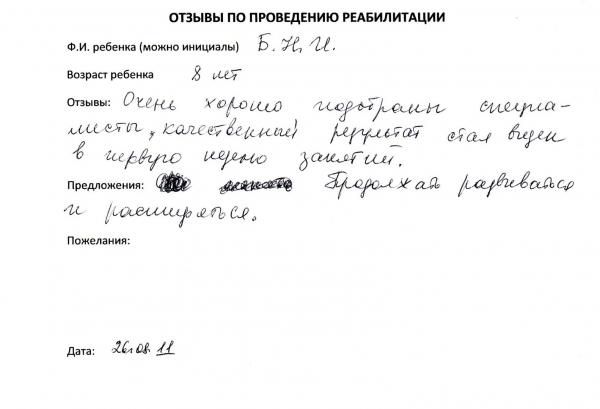 ОТЗЫВЫ ПО ПРОВЕДЕНИЮ РЕАБИЛИТАЦИИ
Ф.И. ребенка (можно инициалы) Б. Н. И.
Возраст ребенка 8 лет
Отзывы: Очень хорошо подобраны специа-
листы, качественный результат стал виден
в первую неделю занятий.
Предложения: Продолжать развиваться
и расширяться.
Пожелания:
Дата: 26.08.11